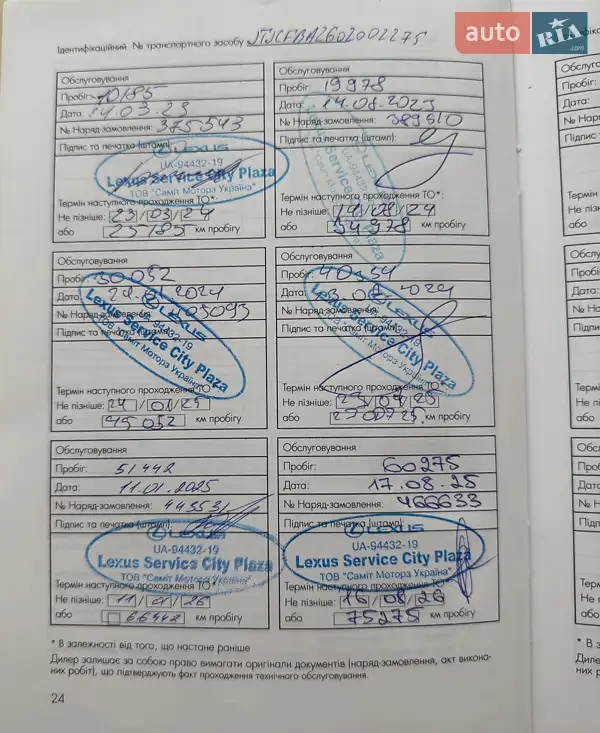 auto RIA.com
Ідентифікаційний № транспортного засобу JTJCEBAZ602002275
Обслуговування
Пробіг: 10185
Дата: 14.03.23
№ Наряд-замовлення: 375543
Підпис та печатка (штамп):
LEXUS
UA-94432-19
Lexus Service City Plaza
ТОВ "Саміт Мотора Україна"
Термін наступного проходження ТО*:
Не пізніше: 23/03/24
або 25185 км пробігу
Обслуговування
Пробіг: 19978
Дата: 14.08.2023
№ Наряд-замовлення: 389510
Підпис та печатка (штамп):
LEXUS
UA-94432-19
Lexus Service City Plaza
ТОВ "Саміт Мотора Україна"
Термін наступного проходження ТО*:
Не пізніше: 14/08/24
або 34978 км пробігу
Обслуговування
Пробіг: 30052
Дата: 2024
№ Наряд-замовлення: 05093
Підпис та печатка (штамп):
LEXUS
UA-94432-19
Lexus Service City Plaza
ТОВ "Саміт Мотора Україна"
Термін наступного проходження ТО*:
Не пізніше: 24/01/25
або 45052 км пробігу
Обслуговування
Пробіг: 40354
Дата: 2024
№ Наряд-замовлення:
Підпис та печатка (штамп):
LEXUS
UA-94432-19
Lexus Service City Plaza
ТОВ "Саміт Мотора Україна"
Термін наступного проходження ТО*:
Не пізніше:
або км пробігу
Обслуговування
Пробіг: 51442
Дата: 11.01.2025
№ Наряд-замовлення: 445531
Підпис та печатка (штамп):
LEXUS
UA-94432-19
Lexus Service City Plaza
ТОВ "Саміт Мотора Україна"
Термін наступного проходження ТО*:
Не пізніше: 11/01/26
або 66442 км пробігу
Обслуговування
Пробіг: 60275
Дата: 17.08.25
№ Наряд-замовлення: 466633
Підпис та печатка (штамп):
LEXUS
UA-94432-19
Lexus Service City Plaza
ТОВ "Саміт Мотора Україна"
Термін наступного проходження ТО*:
Не пізніше: 16/08/26
або 75275 км пробігу
* В залежності від того, що настане раніше
Дилер залишає за собою право вимагати оригінали документів (наряд-замовлення, акт викона-
них робіт), що підтверджують факт проходження технічного обслуговування.
24